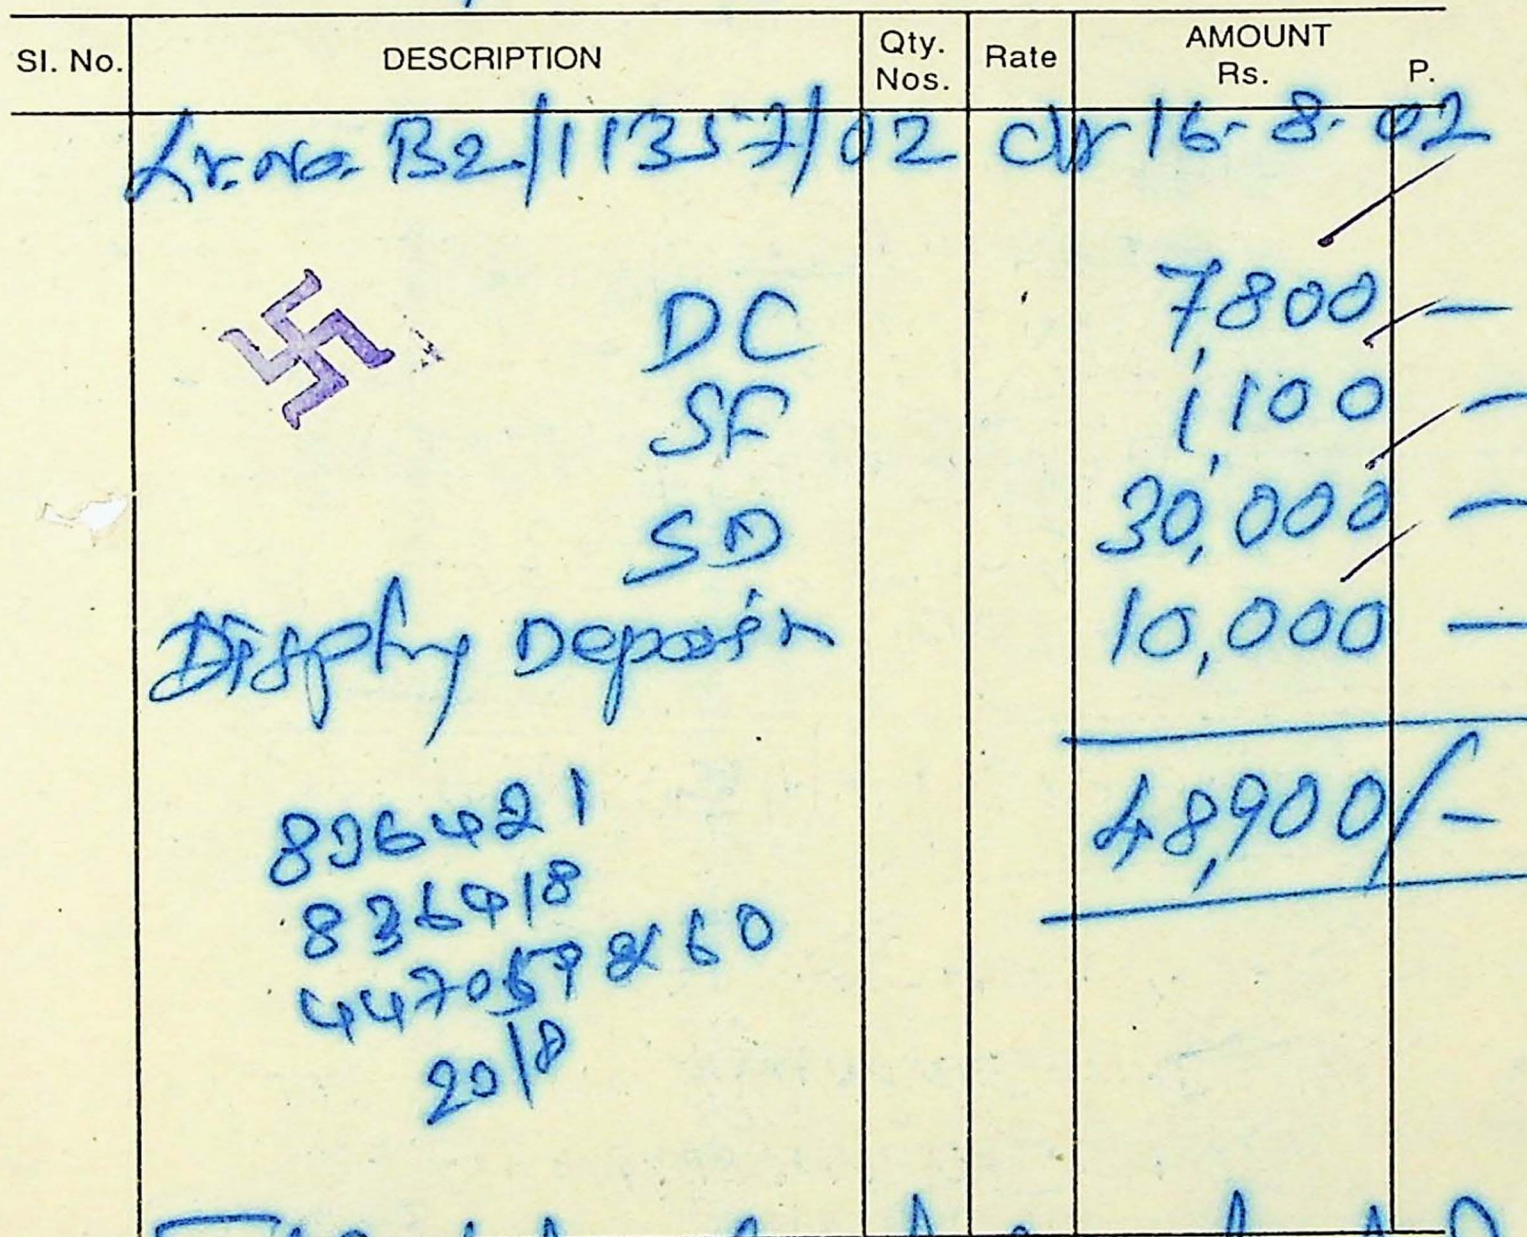 Sl. No. DESCRIPTION Qty. Nos. Rate AMOUNT Rs. P.
Lr. no. B2/11357/02 dt 16-8-02
DC 7,800 —
SF 1,100 —
SD 30,000 —
Display Deposit 10,000 —
48,900/-
836421
836418
447059 & 60
20/8